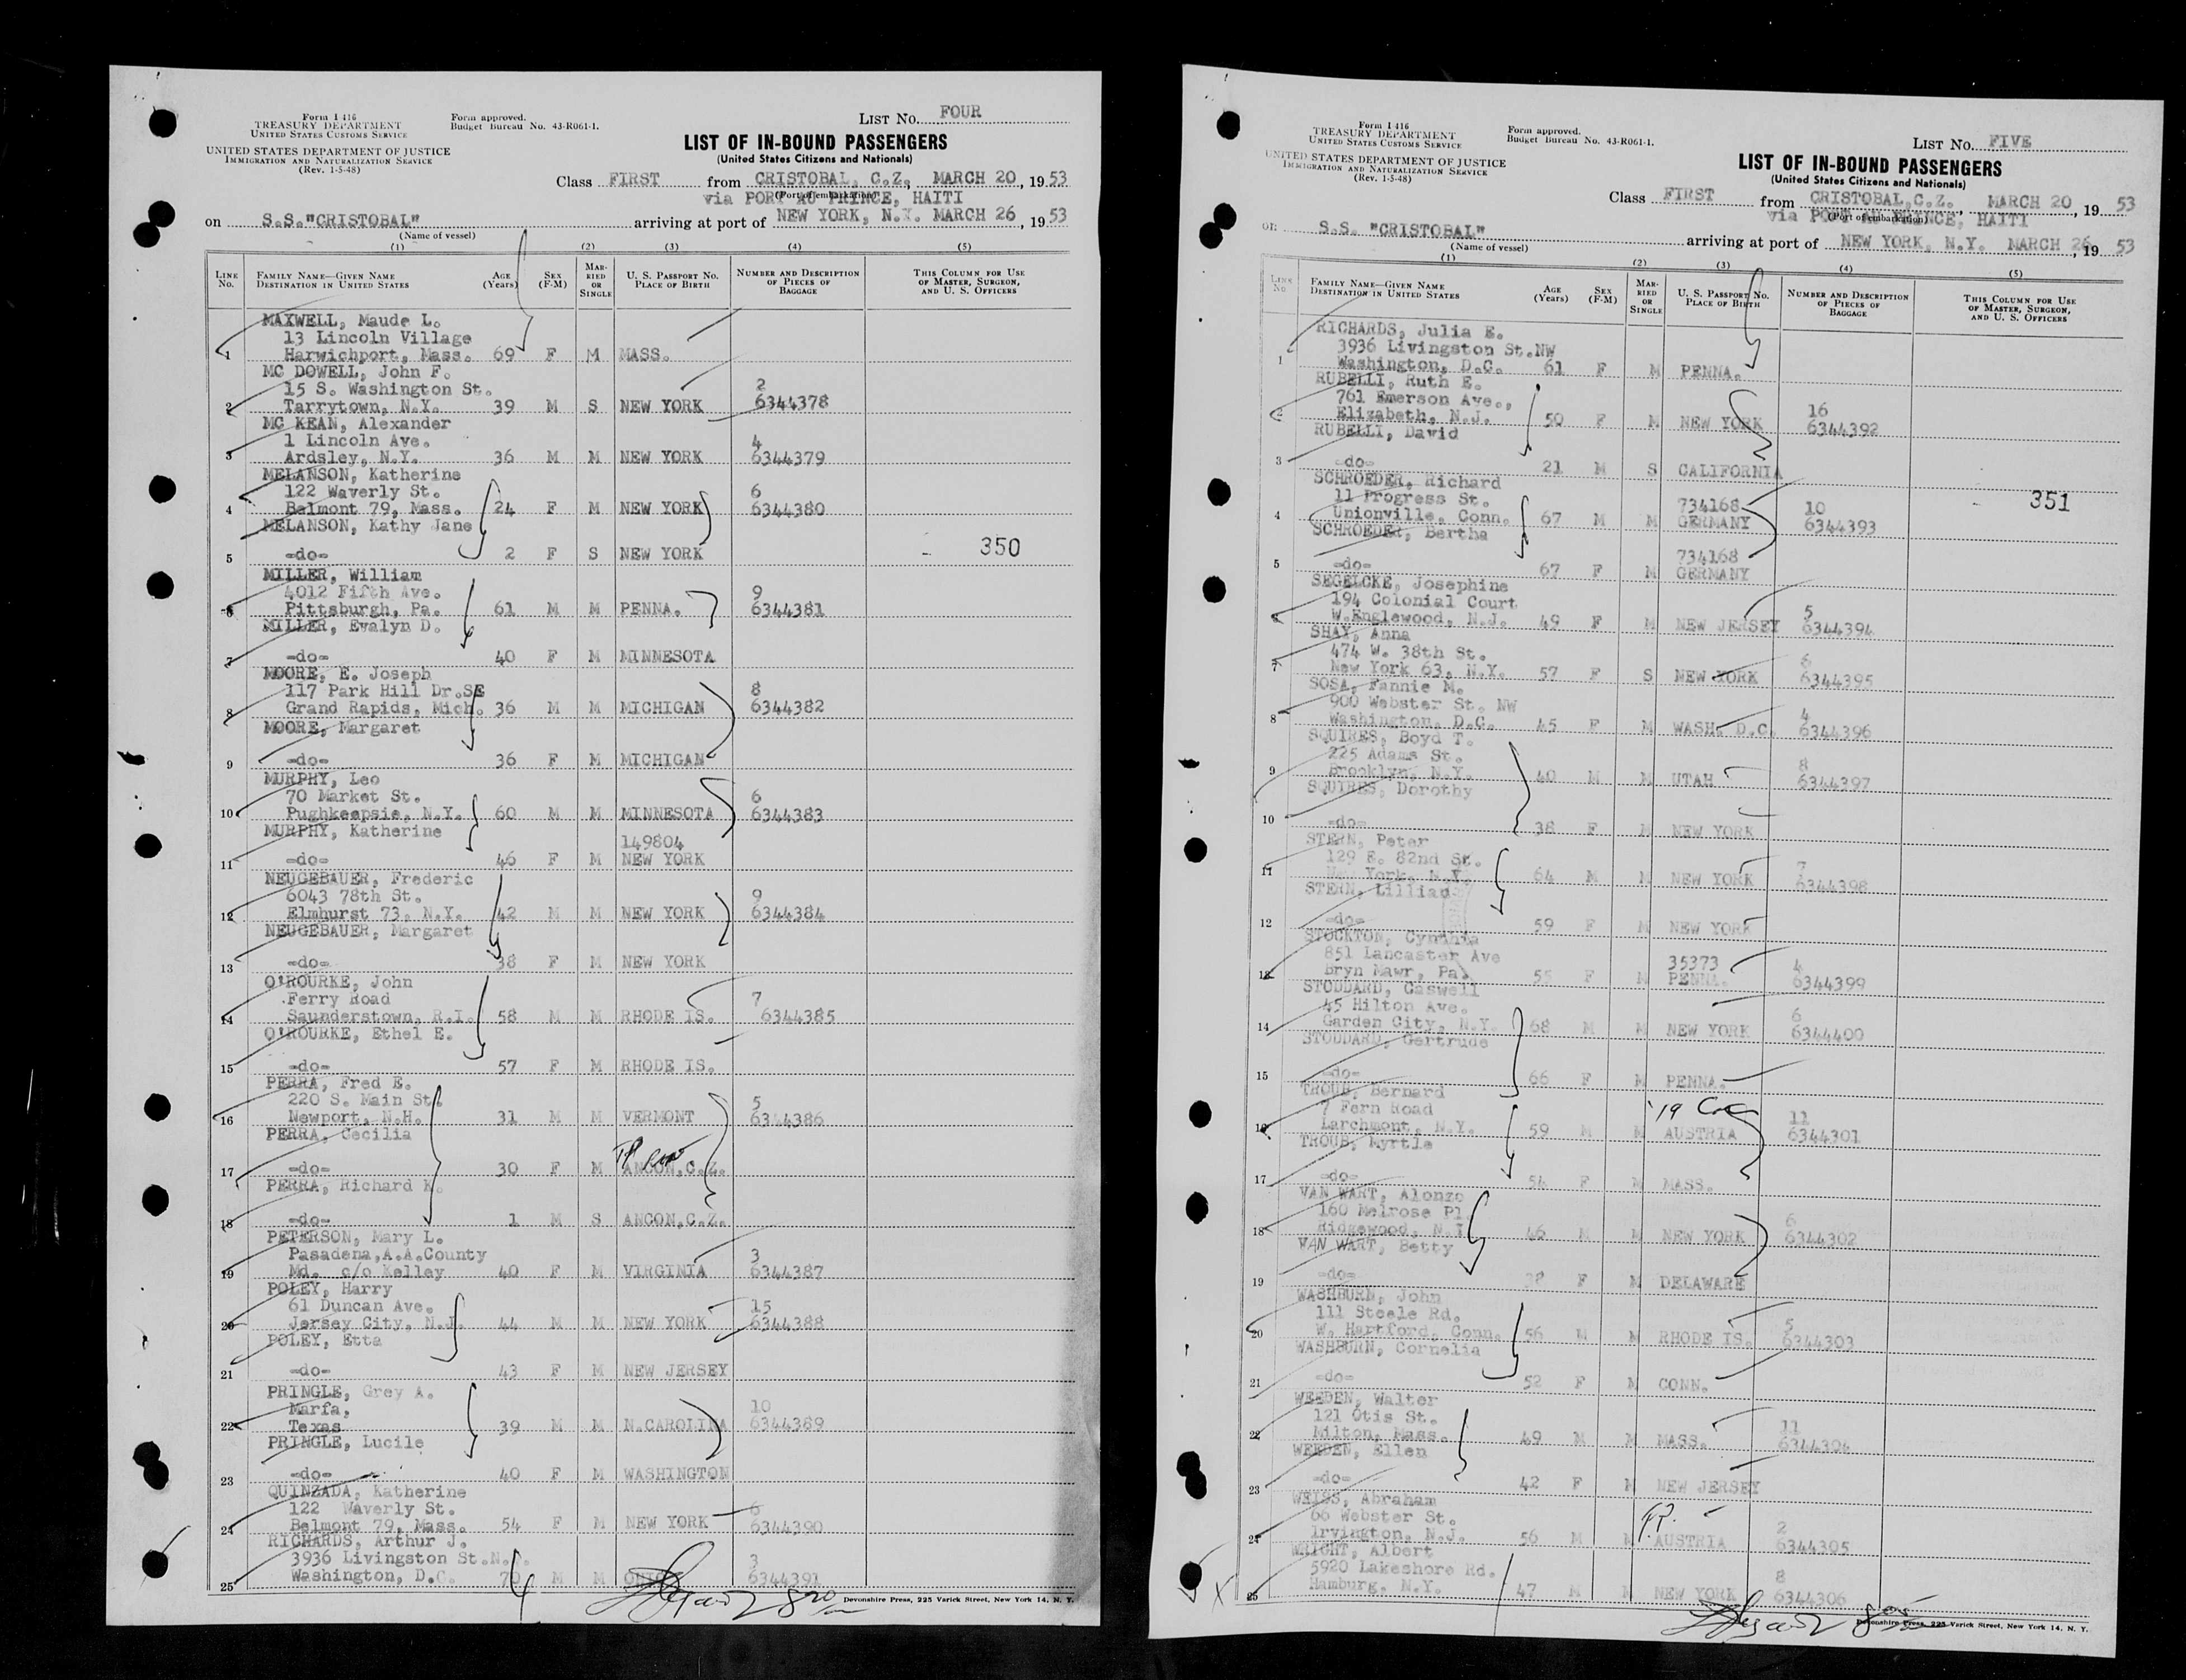 Form I 416
TREASURY DEPARTMENT
UNITED STATES CUSTOMS SERVICE
UNITED STATES DEPARTMENT OF JUSTICE
IMMIGRATION AND NATURALIZATION SERVICE
(Rev. 1-5-48)
Form approved.
Budget Bureau No. 43-R061-1.
LIST No. FOUR
LIST OF IN-BOUND PASSENGERS
(United States Citizens and Nationals)
Class FIRST from CRISTOBAL, C.Z., MARCH 20, 1953
(Port of embarkation)
via PORT AU PRINCE, HAITI
on S.S."CRISTOBAL" arriving at port of NEW YORK, N.Y. MARCH 26, 1953
(Name of vessel)
(1) (2) (3) (4) (5)
LINE No. FAMILY NAME—GIVEN NAME DESTINATION IN UNITED STATES AGE (Years) SEX (F-M) MARRIED OR SINGLE U. S. PASSPORT NO. PLACE OF BIRTH NUMBER AND DESCRIPTION OF PIECES OF BAGGAGE THIS COLUMN FOR USE OF MASTER, SURGEON, AND U. S. OFFICERS
MAXWELL, Maude L.
13 Lincoln Village
1 Harwichport, Mass. 69 F M MASS.
MC DOWELL, John F.
15 S. Washington St. 2
2 Tarrytown, N.Y. 39 M S NEW YORK 6344378
MC KEAN, Alexander
1 Lincoln Ave. 4
3 Ardsley, N.Y. 36 M M NEW YORK 6344379
MELANSON, Katherine
122 Waverly St. 6
4 Belmont 79, Mass. 24 F M NEW YORK 6344380
MELANSON, Kathy Jane
5 -do- 2 F S NEW YORK 350
MILLER, William
4012 Fifth Ave. 9
6 Pittsburgh, Pa. 61 M M PENNA. 6344381
MILLER, Evalyn D.
7 -do- 40 F M MINNESOTA
MOORE, E. Joseph
117 Park Hill Dr.SE 8
8 Grand Rapids, Mich. 36 M M MICHIGAN 6344382
MOORE, Margaret
9 -do- 36 F M MICHIGAN
MURPHY, Leo
70 Market St. 6
10 Pughkeepsie, N.Y. 60 M M MINNESOTA 6344383
MURPHY, Katherine 149804
11 -do- 46 F M NEW YORK
NEUGEBAUER, Frederic
6043 78th St. 9
12 Elmhurst 73, N.Y. 42 M M NEW YORK 6344384
NEUGEBAUER, Margaret
13 -do- 38 F M NEW YORK
O'ROURKE, John
Ferry Road 7
14 Saunderstown, R.I. 58 M M RHODE IS. 6344385
O'ROURKE, Ethel E.
15 -do- 57 F M RHODE IS.
PERRA, Fred E.
220 S. Main St. 5
16 Newport, N.H. 31 M M VERMONT 6344386
PERRA, Cecilia
17 -do- 30 F M ANCON,C.Z.
PERRA, Richard K.
18 -do- 1 M S ANCON,C.Z.
PETERSON, Mary L.
Pasadena,A.A.County 3
19 Md. c/o Kelley 40 F M VIRGINIA 6344387
POLEY, Harry
61 Duncan Ave. 15
20 Jersey City, N.J. 44 M M NEW YORK 6344388
POLEY, Etta
21 -do- 43 F M NEW JERSEY
PRINGLE, Grey A.
Marfa, 10
22 Texas 39 M M N.CAROLINA 6344389
PRINGLE, Lucile
23 -do- 40 F M WASHINGTON
QUINZADA, Katherine
122 Waverly St. 6
24 Belmont 79, Mass. 54 F M NEW YORK 6344390
RICHARDS, Arthur J.
3936 Livingston St.N.W. 3
25 Washington, D.C. 70 M M OHIO 6344391
Devonshire Press, 225 Varick Street, New York 14, N. Y.
Form I 416
TREASURY DEPARTMENT
UNITED STATES CUSTOMS SERVICE
UNITED STATES DEPARTMENT OF JUSTICE
IMMIGRATION AND NATURALIZATION SERVICE
(Rev. 1-5-48)
Form approved.
Budget Bureau No. 43-R061-1.
LIST No. FIVE
LIST OF IN-BOUND PASSENGERS
(United States Citizens and Nationals)
Class FIRST from CRISTOBAL,C.Z. MARCH 20, 1953
(Port of embarkation)
via PORT AU PRINCE, HAITI
on S.S. "CRISTOBAL" arriving at port of NEW YORK, N.Y. MARCH 26, 1953
(Name of vessel)
(1) (2) (3) (4) (5)
LINE No. FAMILY NAME—GIVEN NAME DESTINATION IN UNITED STATES AGE (Years) SEX (F-M) MARRIED OR SINGLE U. S. PASSPORT NO. PLACE OF BIRTH NUMBER AND DESCRIPTION OF PIECES OF BAGGAGE THIS COLUMN FOR USE OF MASTER, SURGEON, AND U. S. OFFICERS
RICHARDS, Julia E.
3936 Livingston St.NW
1 Washington, D.C. 61 F M PENNA.
RUBELLI, Ruth E.
761 Emerson Ave., 16
2 Elizabeth, N.J. 50 F M NEW YORK 6344392
RUBELLI, David
3 -do- 21 M S CALIFORNIA
SCHROEDER, Richard
11 Progress St. 734168 10 351
4 Unionville, Conn. 67 M M GERMANY 6344393
SCHROEDER, Bertha 734168
5 -do- 67 F M GERMANY
SEGELCKE, Josephine
194 Colonial Court 5
6 W.Englewood, N.J. 49 F M NEW JERSEY 6344394
SHAY, Anna
474 W. 38th St. 6
7 New York 63, N.Y. 57 F S NEW YORK 6344395
SOSA, Fannie M.
900 Webster St. NW 4
8 Washington, D.C. 45 F M WASH. D.C. 6344396
SQUIRES, Boyd T.
225 Adams St. 8
9 Brooklyn, N.Y. 40 M M UTAH 6344397
SQUIRES, Dorothy
10 -do- 38 F M NEW YORK
STERN, Peter
129 E. 82nd St. 7
11 New York, N.Y. 64 M M NEW YORK 6344398
STERN, Lillian
12 -do- 59 F M NEW YORK
STOCKTON, Cynthia
851 Lancaster Ave 35373 4
13 Bryn Mawr, Pa. 55 F M PENNA. 6344399
STODDARD, Caswell
45 Hilton Ave. 6
14 Garden City, N.Y. 68 M M NEW YORK 6344400
STODDARD, Gertrude
15 -do- 66 F M PENNA.
TROUB, Bernard
7 Fern Road '19 11
16 Larchmont, N.Y. 59 M M AUSTRIA 6344301
TROUB, Myrtle
17 -do- 54 F M MASS.
VAN WART, Alonzo
160 Melrose Pl. 6
18 Ridgewood, N.J. 46 M M NEW YORK 6344302
VAN WART, Betty
19 -do- 38 F M DELAWARE
WASHBURN, John
111 Steele Rd. 5
20 W. Hartford, Conn. 56 M M RHODE IS. 6344303
WASHBURN, Cornelia
21 -do- 52 F M CONN.
WEEDEN, Walter
121 Otis St. 11
22 Milton, Mass. 49 M M MASS. 6344304
WEEDEN, Ellen
23 -do- 42 F M NEW JERSEY
WEISS, Abraham
66 Webster St. 2
24 Irvington, N.J. 56 M M AUSTRIA 6344305
WRIGHT, Albert
5920 Lakeshore Rd. 8
25 Hamburg, N.Y. 47 M M NEW YORK 6344306
Devonshire Press, 225 Varick Street, New York 14, N. Y.